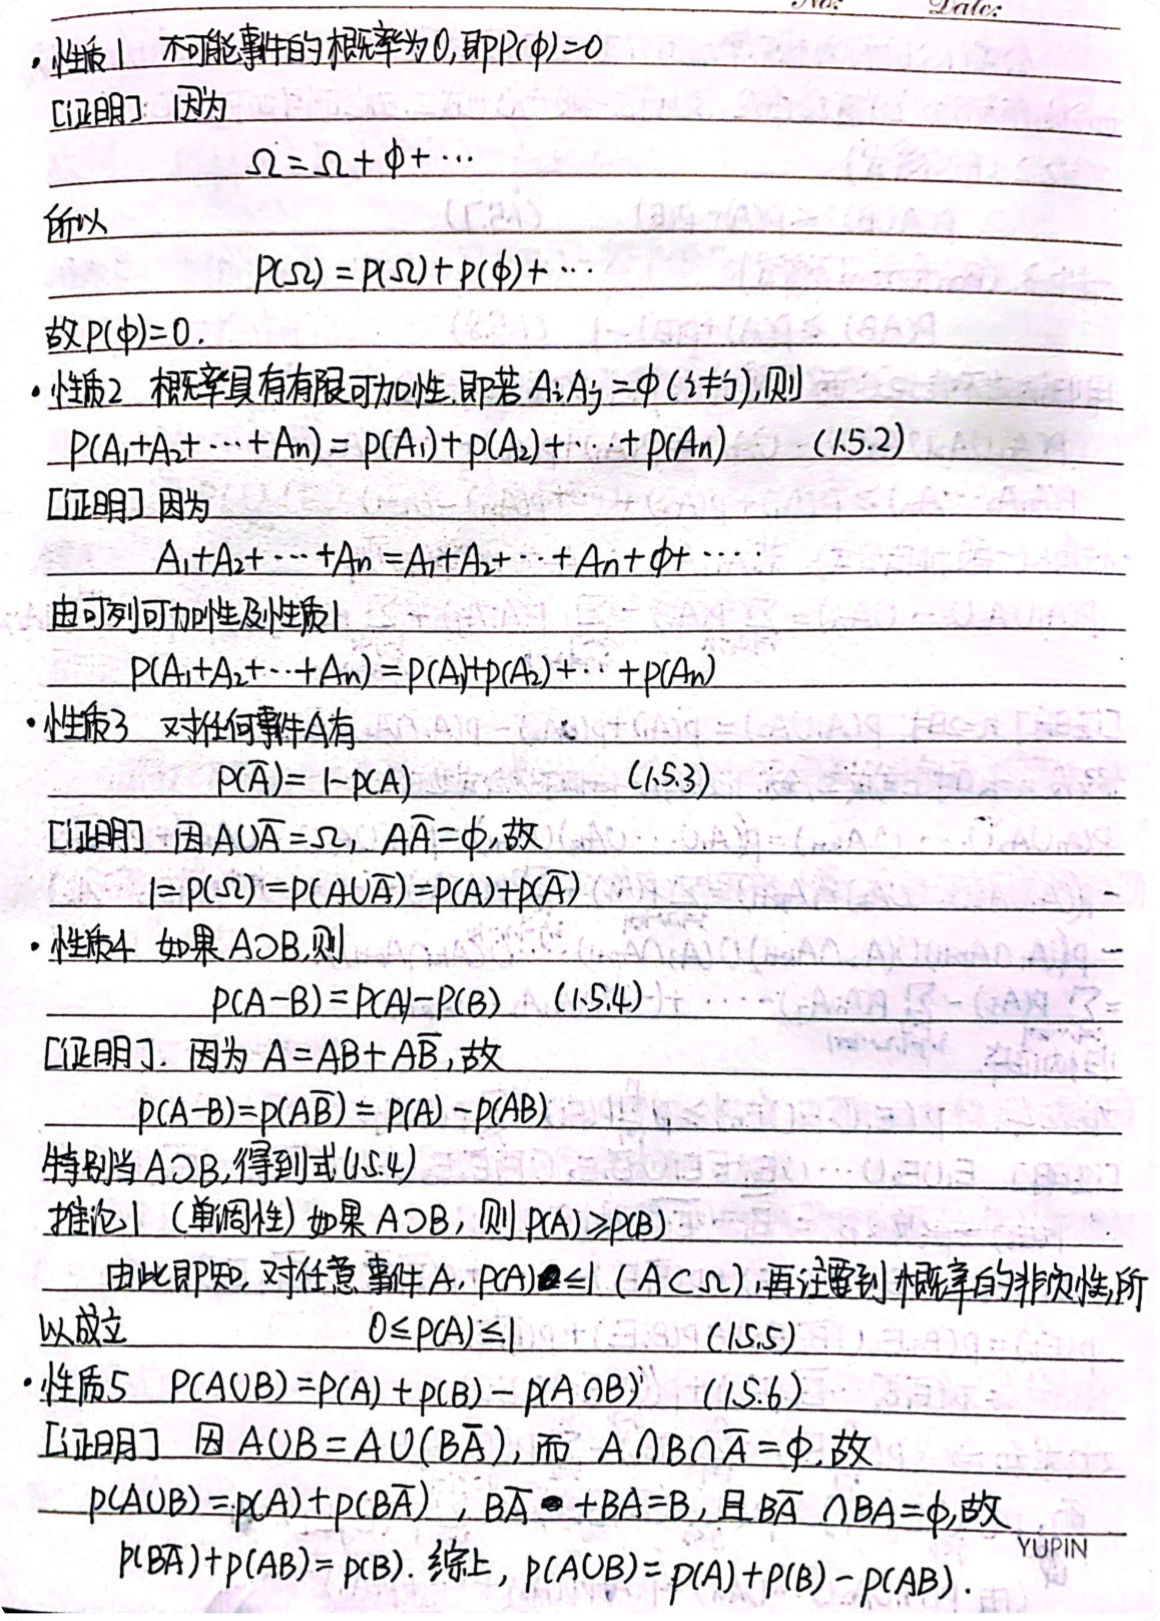 No: Date:
·性质1 不可能事件的概率为0,即P(φ)=0
[证明]: 因为
Ω=Ω+φ+⋯
所以
P(Ω)=P(Ω)+P(φ)+⋯
故P(φ)=0.
·性质2 概率具有有限可加性,即若AiAj=φ(i≠j),则
P(A₁+A₂+⋯+An)=P(A₁)+P(A₂)+⋯+P(An) (1.5.2)
[证明] 因为
A₁+A₂+⋯+An=A₁+A₂+⋯+An+φ+⋯⋅
由可列可加性及性质1
P(A₁+A₂+⋯+An)=P(A₁)+P(A₂)+⋯+P(An)
·性质3 对任何事件A有
P(A̅)=1-P(A) (1.5.3)
[证明] 因A∪A̅=Ω, AA̅=φ,故
1=P(Ω)=P(A∪A̅)=P(A)+P(A̅)
·性质4 如果A⊃B,则
P(A-B)=P(A)-P(B) (1.5.4)
[证明]. 因为A=AB+AB̅,故
P(A-B)=P(AB̅)=P(A)-P(AB)
特别当A⊃B,得到式(1.5.4)
推论1 (单调性) 如果A⊃B, 则P(A)≥P(B)
由此即知,对任意事件A, P(A)≤1 (A⊂Ω),再注意到概率的非负性,所
以成立 0≤P(A)≤1 (1.5.5)
·性质5 P(A∪B)=P(A)+P(B)-P(A∩B) (1.5.6)
[证明] 因A∪B=A∪(BA̅),而 A∩B∩A̅=φ,故
P(A∪B)=P(A)+P(BA̅), BA̅+BA=B,且BA̅∩BA=φ,故
P(BA̅)+P(AB)=P(B). 综上, P(A∪B)=P(A)+P(B)-P(AB).
YUPIN